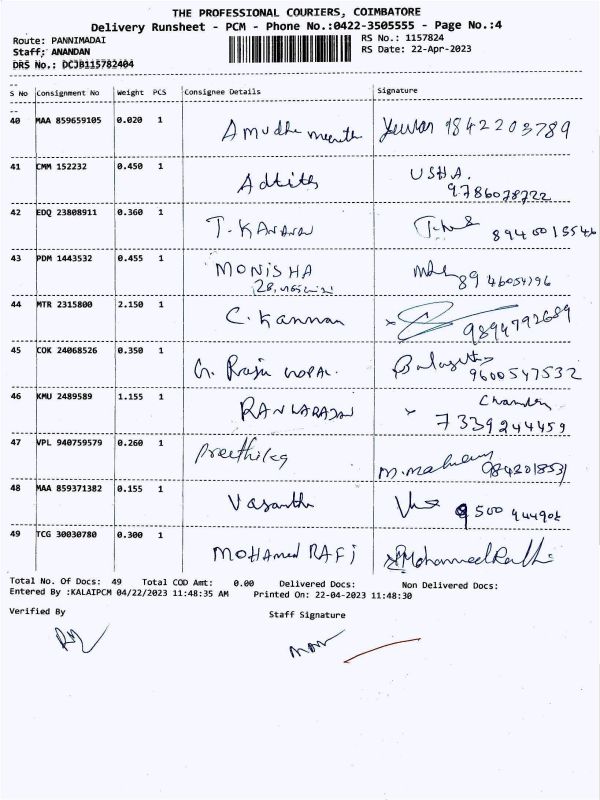 THE PROFESSIONAL COURIERS, COIMBATORE
Delivery Runsheet - PCM - Phone No.:0422-3505555 - Page No.:4
Route: PANNIMADAI RS No.: 1157824
Staff: ANANDAN RS Date: 22-Apr-2023
DRS No.: DCJB115782404
S No Consignment No Weight PCS Consignee Details Signature
40 MAA 859659105 0.020 1 Amudha 9842203789
41 CMM 152232 0.450 1 Adtith USHA.
9786078722
42 EDQ 23808911 0.360 1 T. KANANAN
8940015546
43 PDM 1443532 0.455 1 MONISHA
8946054796
44 MTR 2315800 2.150 1 C. Kannan 9894792689
45 COK 24068526 0.350 1 G. Raja GOPAL.
9600547532
46 KMU 2489589 1.155 1 RANGARAJAN
7339244459
47 VPL 940759579 0.260 1 Preethika 984201853
48 MAA 859371382 0.155 1 Vasantha 9500944906
49 TCG 30030780 0.300 1 MOHAMED RAFI Mohammed Rafi
Total No. Of Docs: 49 Total COD Amt: 0.00 Delivered Docs: Non Delivered Docs:
Entered By :KALAIPCM 04/22/2023 11:48:35 AM Printed On: 22-04-2023 11:48:30
Verified By Staff Signature